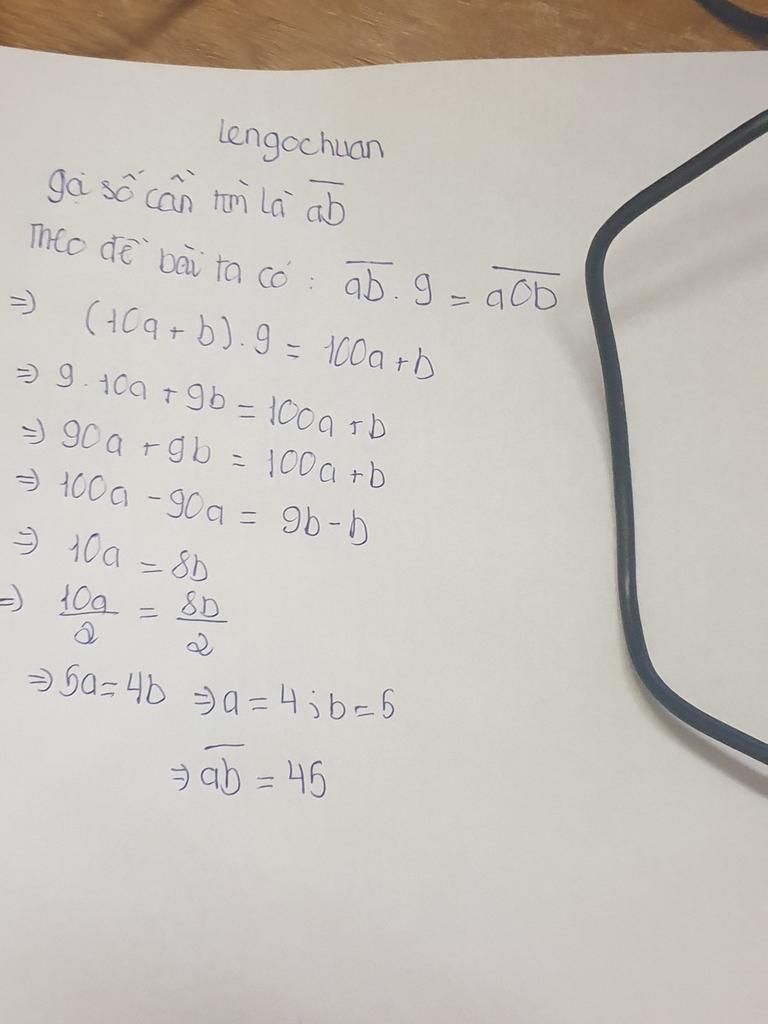 lengochuan
gọi số cần tìm là a̅b̅
Theo đề bài ta có : a̅b̅ . 9 = a̅0̅b̅
=> (10a + b) . 9 = 100a + b
=> 9 . 10a + 9b = 100a + b
=> 90a + 9b = 100a + b
=> 100a - 90a = 9b - b
=> 10a = 8b
=> 10a/2 = 8b/2
=> 5a = 4b => a = 4 ; b = 5
=> a̅b̅ = 45